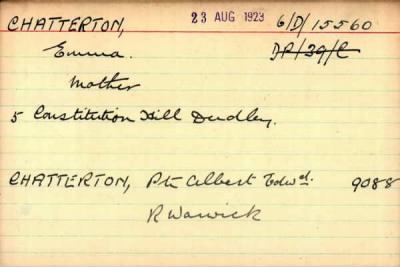 CHATTERTON, 23 AUG 1923 6/D/15560
Emma. DP/39/C
Mother
5 Constitution Hill Dudley.
CHATTERTON, Pte Albert Edwd. 9088
R Warwick